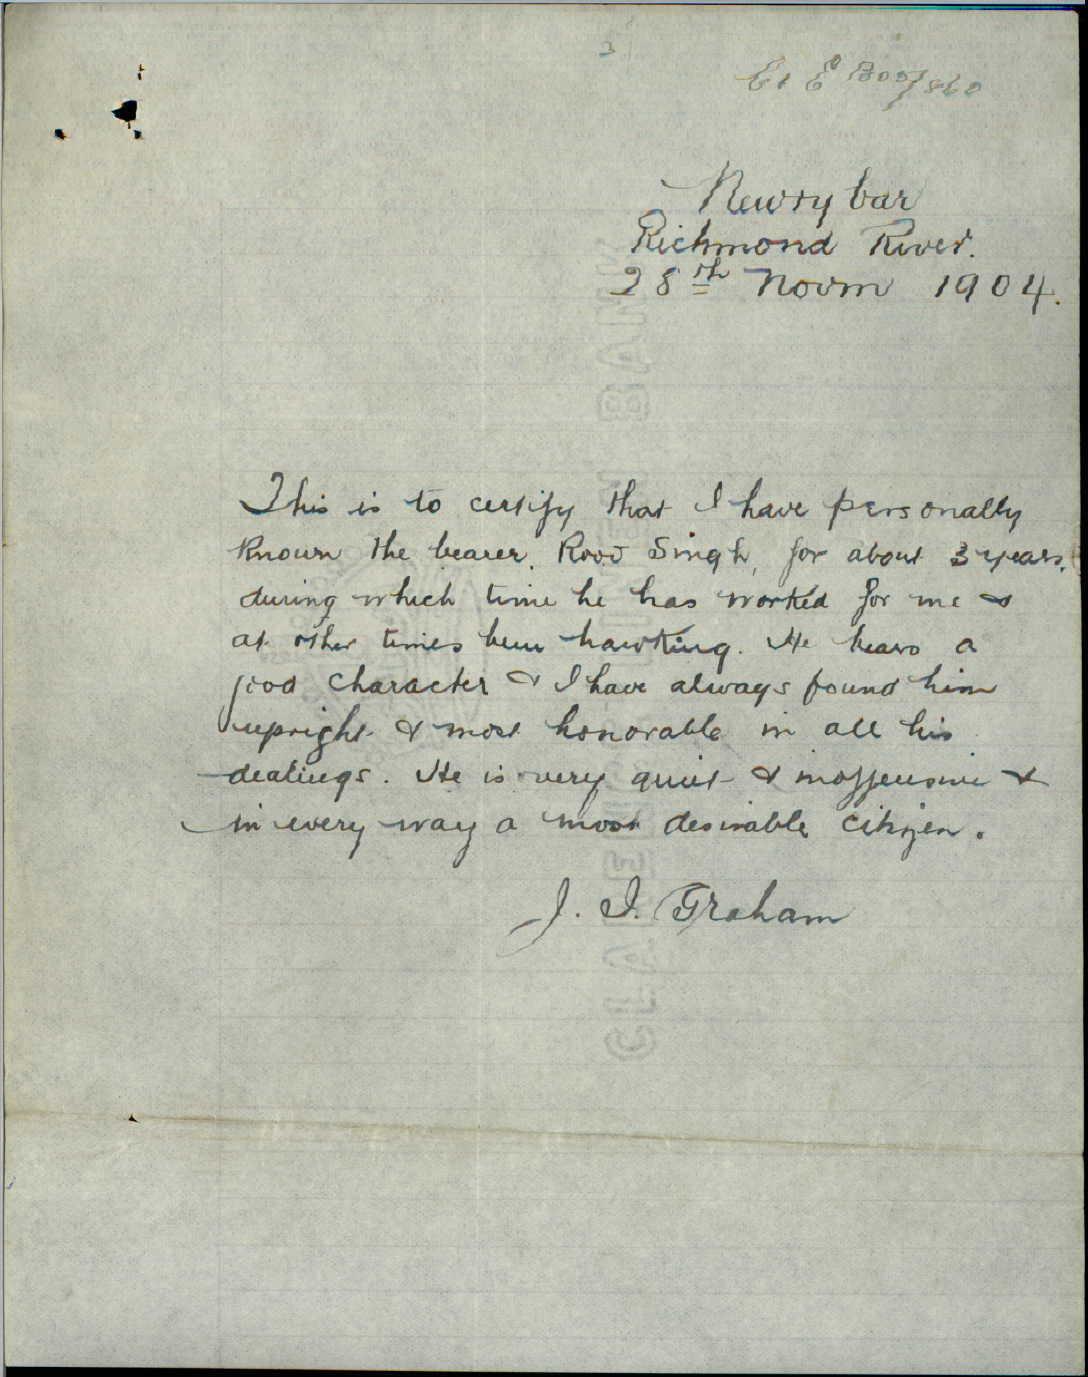 3
Newrybar
Richmond River.
28th Novm 1904.
This is to certify that I have personally
known the bearer, Rood Singh, for about 3 years,
during which time he has worked for me &
at other times been hawking. He bears a
good character & I have always found him
upright & most honorable in all his
dealings. He is very quiet & inoffensive &
in every way a most desirable citizen.
J. I. Graham